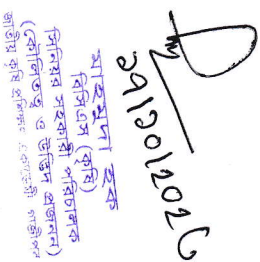 ২৭/১০/২০২৫
মাহমুদা হক
বিপিএস (কৃষি)
সিনিয়র সহকারী পরিচালক
(কৌলিতত্ত্ব ও উদ্ভিদ প্রজনন)
জাতীয় কৃষি প্রশিক্ষণ একাডেমী গাজীপুর